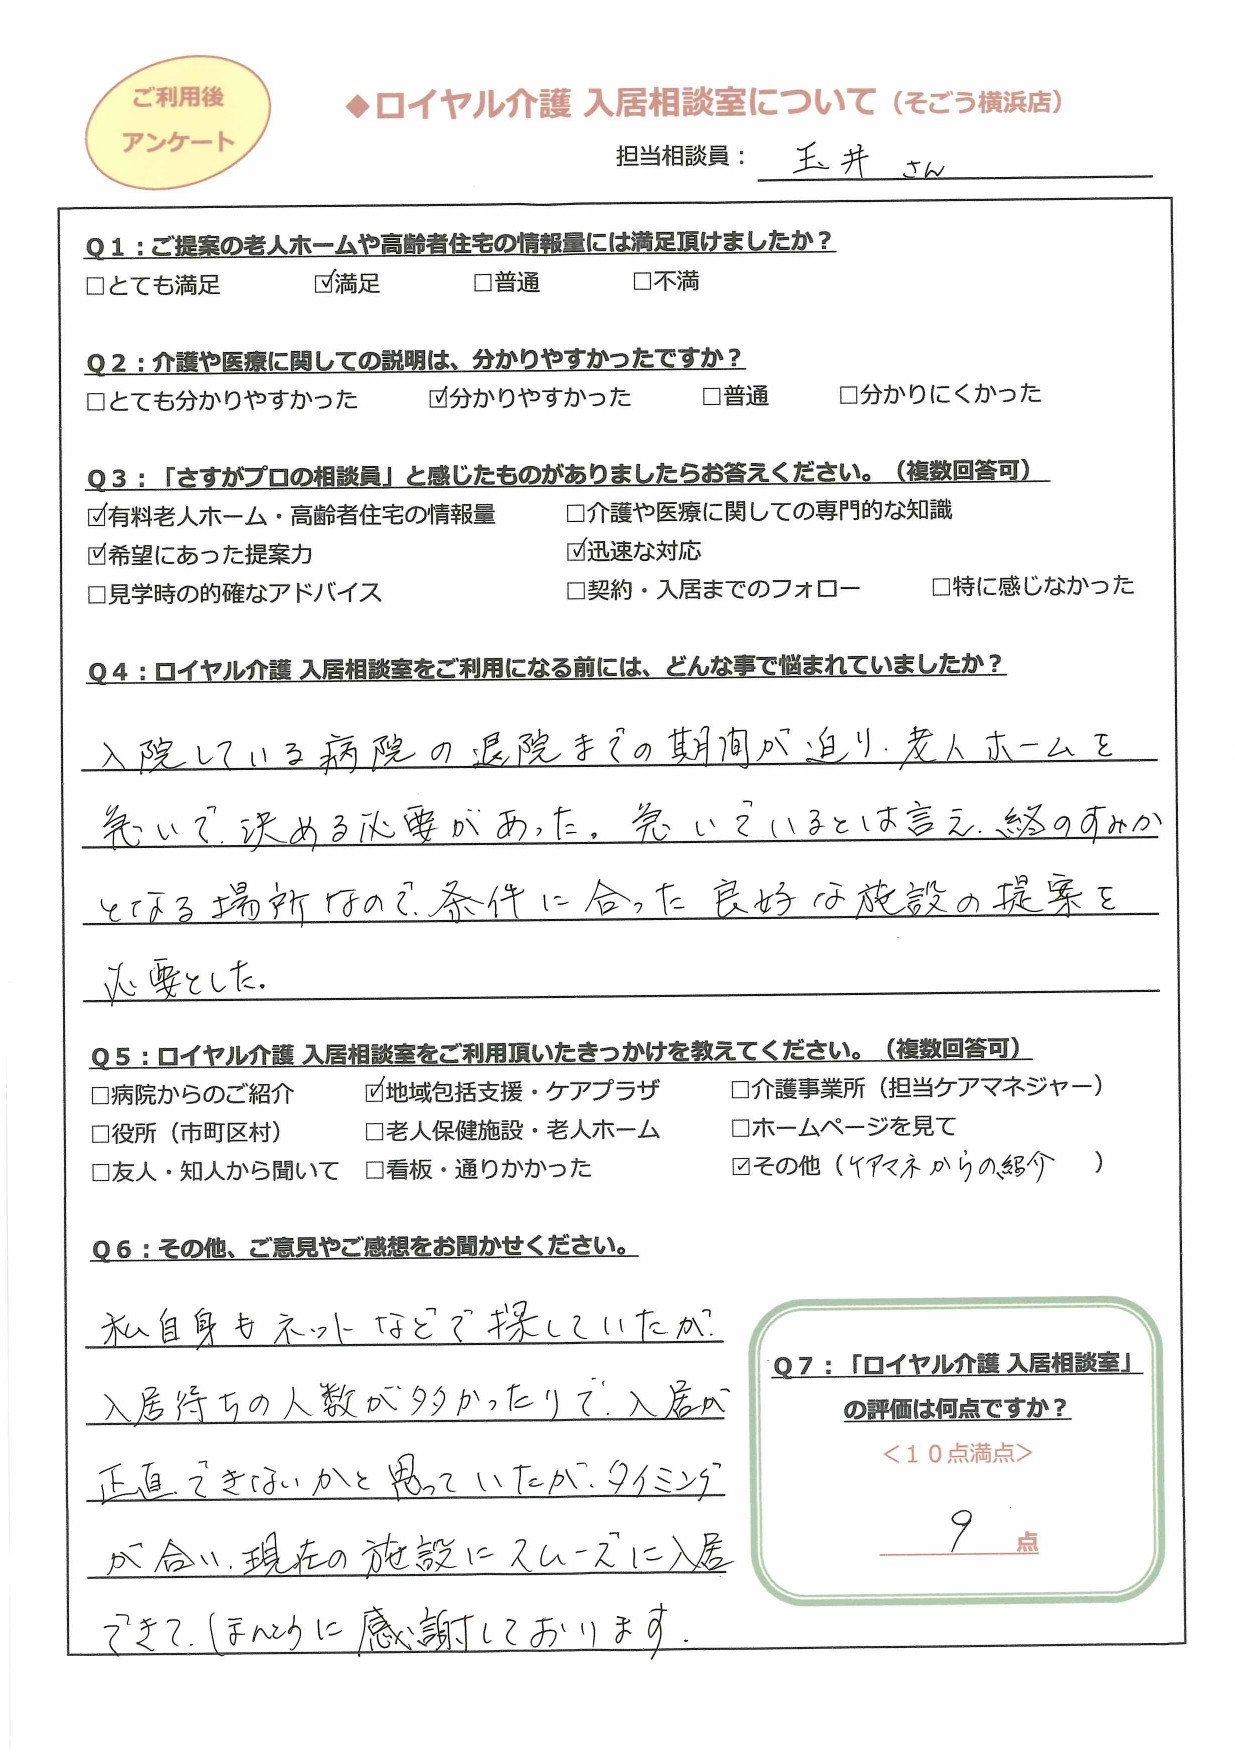 ご利用後
アンケート
◆ロイヤル介護 入居相談室について（そごう横浜店）
担当相談員： 玉井 さん
Q1：ご提案の老人ホームや高齢者住宅の情報量には満足頂けましたか？
□とても満足 ☑満足 □普通 □不満
Q2：介護や医療に関しての説明は、分かりやすかったですか？
□とても分かりやすかった ☑分かりやすかった □普通 □分かりにくかった
Q3：「さすがプロの相談員」と感じたものがありましたらお答えください。（複数回答可）
☑有料老人ホーム・高齢者住宅の情報量 □介護や医療に関しての専門的な知識
☑希望にあった提案力 ☑迅速な対応
□見学時の的確なアドバイス □契約・入居までのフォロー □特に感じなかった
Q4：ロイヤル介護 入居相談室をご利用になる前には、どんな事で悩まれていましたか？
入院している病院の退院までの期間が迫り、老人ホームを
急いで、決める必要があった。急いでいるとは言え、終のすみか
となる場所なので、条件に合った良好な施設の提案を
必要とした。
Q5：ロイヤル介護 入居相談室をご利用頂いたきっかけを教えてください。（複数回答可）
□病院からのご紹介 ☑地域包括支援・ケアプラザ □介護事業所（担当ケアマネジャー）
□役所（市町区村） □老人保健施設・老人ホーム □ホームページを見て
□友人・知人から聞いて □看板・通りかかった ☑その他（ケアマネからの紹介 ）
Q6：その他、ご意見やご感想をお聞かせください。
私自身もネットなどで探していたが、
入居待ちの人数が多かったりで、入居が
正直、できないかと思っていたが、タイミング
が合い、現在の施設にスムーズに入居
できて、ほんとうに感謝しております。
Q7：「ロイヤル介護 入居相談室」
の評価は何点ですか？
＜１０点満点＞
9 点